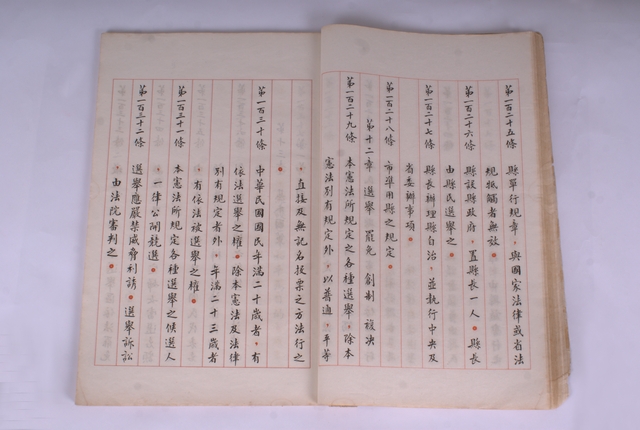 第一百二十五條　縣單行規章，與國家法律或省法
規牴觸者無效。
第一百二十六條　縣設縣政府，置縣長一人。縣長
由縣民選舉之。
第一百二十七條　縣長辦理縣自治，並執行中央及
省委辦事項。
第一百二十八條　市準用縣之規定。
第十二章　選舉　罷免　創制　複決
第一百二十九條　本憲法所規定之各種選舉，除本
憲法別有規定外，以普通，平等
，直接及無記名投票之方法行之
。
第一百三十條　中華民國國民年滿二十歲者，有
依法選舉之權。除本憲法及法律
別有規定者外，年滿二十三歲者
，有依法被選舉之權。
第一百三十一條　本憲法所規定各種選舉之候選人
，一律公開競選。
第一百三十二條　選舉應嚴禁威脅利誘。選舉訴訟
，由法院審判之。